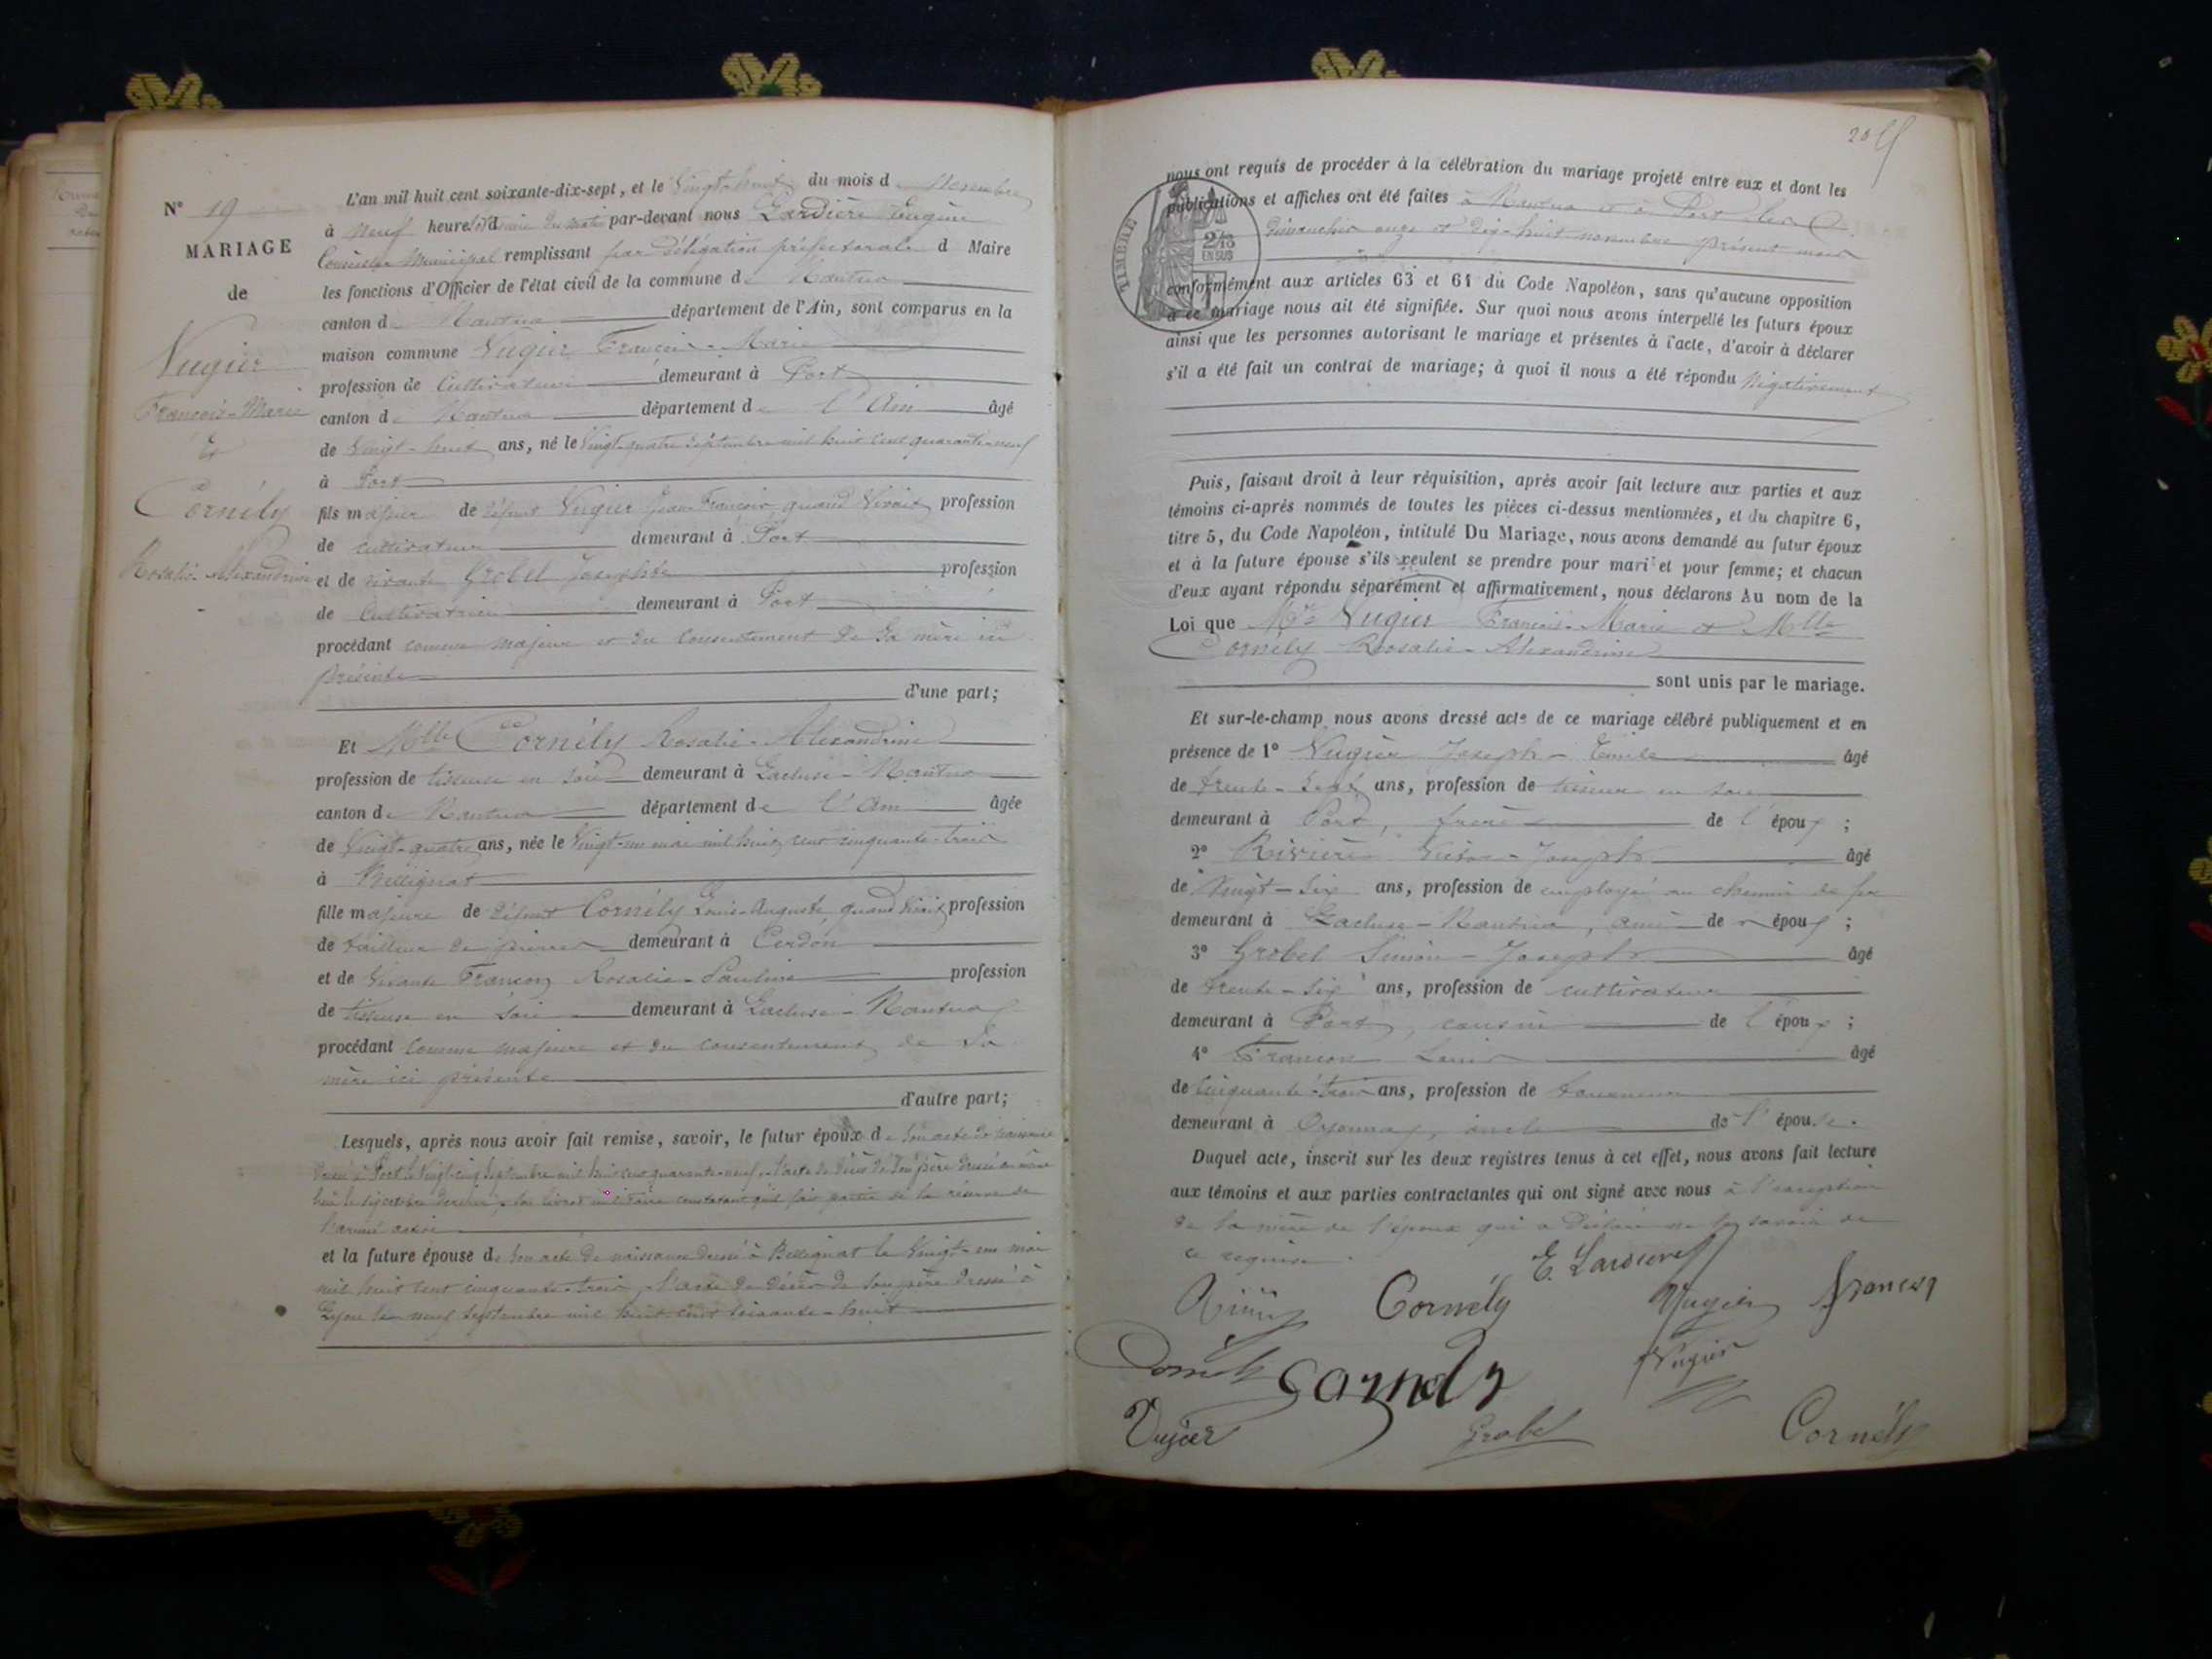 N° 19
MARIAGE
de
Vugier
François-Marie
Et
Cornély
Rosalie-Alexandrine
L'an mil huit cent soixante-dix-sept, et le Vingt-huit du mois de Novembre
à neuf heures et demie du matin par-devant nous Lardière Eugène
Conseiller Municipal remplissant par délégation préfectorale d Maire
les fonctions d'Officier de l'état civil de la commune de Nantua
canton de Nantua département de l'Ain, sont comparus en la
maison commune Vugier François-Marie
profession de Cultivateur demeurant à Port
canton de Nantua département de l'Ain âgé
de Vingt-huit ans, né le Vingt-quatre Septembre mil huit cent quarante-neuf
à Port
fils majeur de défunt Vugier Jean François quand Vivait profession
de cultivateur demeurant à Port
et de vivante Grobel Josephte profession
de Cultivatrice demeurant à Port
procédant comme majeur et du consentement de Sa mère ici
présente
d'une part;
Et Mlle Cornély Rosalie-Alexandrine
profession de tisseuse en soie demeurant à Lacluse-Nantua
canton de Nantua département de l'Ain âgée
de Vingt-quatre ans, née le Vingt-un mai mil huit cent cinquante-trois
à Bellignat
fille majeure de défunt Cornély Louis-Auguste quand Vivait profession
de tailleur de pierres demeurant à Cerdon
et de Vivante Françon Rosalie-Pauline profession
de tisseuse en soie demeurant à Lacluse-Nantua
procédant comme majeure et du consentement de Sa
mère ici présente
d'autre part;
Lesquels, après nous avoir fait remise, savoir, le futur époux de Son acte de naissance
dressé à Port le Vingt-cinq Septembre mil huit cent quarante-neuf, l'acte de décès de Son père dressé au même
lieu le dernier, Son livret militaire constatant qu'il fait partie de la réserve de
l'armée active
et la future épouse de Son acte de naissance dressé à Bellignat le Vingt-un mai
mil huit cent cinquante-trois, l'acte de décès de Son père dressé à
Lyon le neuf Septembre mil huit cent soixante-huit
nous ont requis de procéder à la célébration du mariage projeté entre eux et dont les
publications et affiches ont été faites à Nantua et à Port les
Dimanches onze et Dix-huit novembre présent mois
TIMBRE
2/10
EN SUS
conformément aux articles 63 et 64 du Code Napoléon, sans qu'aucune opposition
à ce mariage nous ait été signifiée. Sur quoi nous avons interpellé les futurs époux
ainsi que les personnes autorisant le mariage et présentes à l'acte, d'avoir à déclarer
s'il a été fait un contrat de mariage; à quoi il nous a été répondu Négativement
Puis, faisant droit à leur réquisition, après avoir fait lecture aux parties et aux
témoins ci-après nommés de toutes les pièces ci-dessus mentionnées, et du chapitre 6,
titre 5, du Code Napoléon, intitulé Du Mariage, nous avons demandé au futur époux
et à la future épouse s'ils veulent se prendre pour mari et pour femme; et chacun
d'eux ayant répondu séparément et affirmativement, nous déclarons Au nom de la
Loi que Mr Vugier François-Marie et Mlle
Cornély Rosalie-Alexandrine
sont unis par le mariage.
Et sur-le-champ nous avons dressé acte de ce mariage célébré publiquement et en
présence de 1° Vugier Joseph-Emile âgé
de trente-sept ans, profession de tisseur en soie
demeurant à Port, frère de l'époux;
2° Rivière Joseph âgé
de Vingt-six ans, profession de employé au chemin de fer
demeurant à Lacluse-Nantua, ami de époux;
3° Grobel Simon-Joseph âgé
de trente-six ans, profession de cultivateur
demeurant à Port, cousin de l'époux;
4° Françon Louis âgé
de Cinquante-trois ans, profession de tourneur
demeurant à Oyonnax, oncle de l'épouse.
Duquel acte, inscrit sur les deux registres tenus à cet effet, nous avons fait lecture
aux témoins et aux parties contractantes qui ont signé avec nous à l'exception
de la mère de l'époux qui a déclaré ne le savoir de
ce requise.
E. Lardière
Cornély Vugier françon
Vugier
Vugier Grobel Cornély